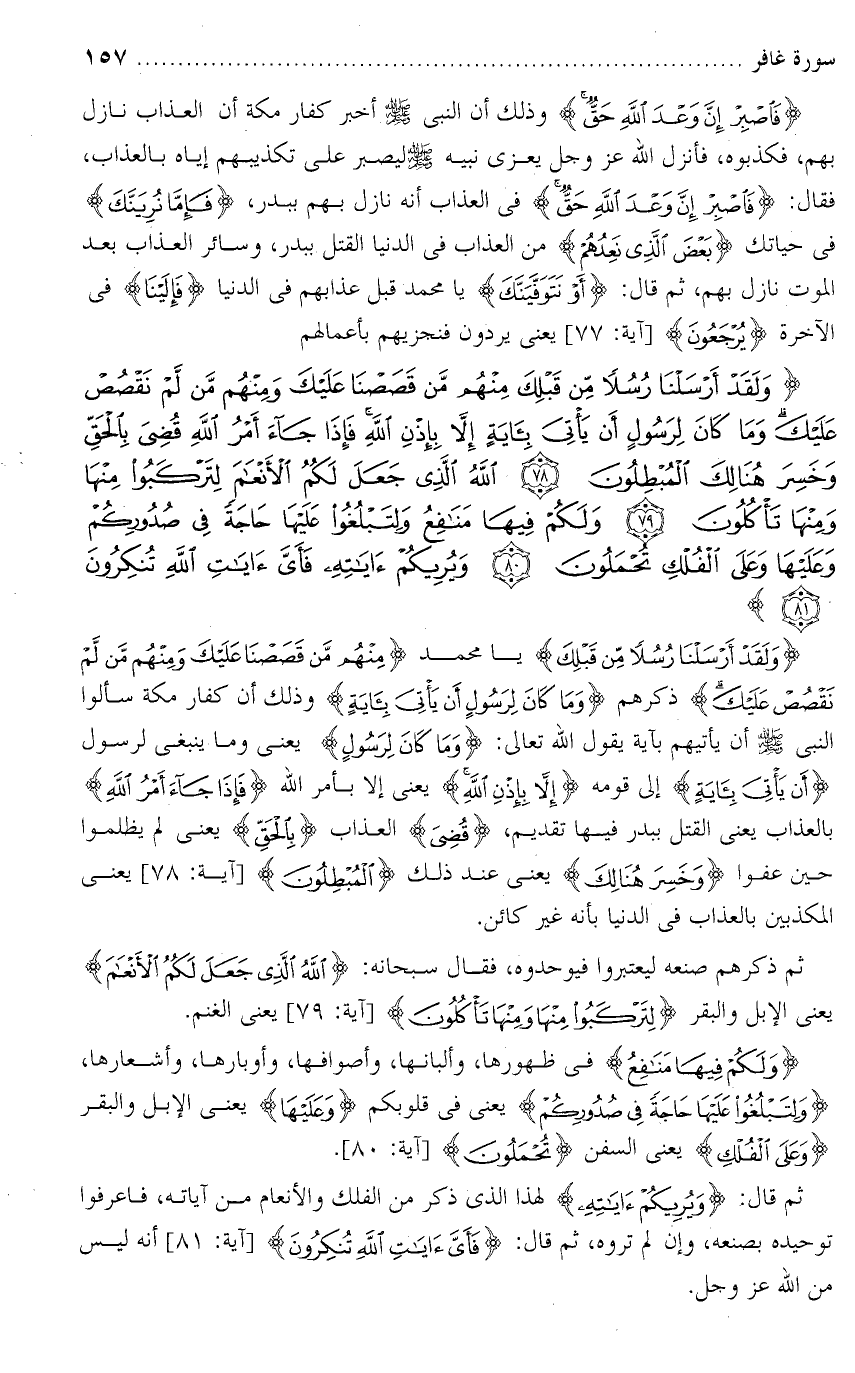 سورة غافر ........................................................................ ١٥٧
﴿فَٱصۡبِرۡ إِنَّ وَعۡدَ ٱللَّهِ حَقّٞۚ﴾ وذلك أن النبى ﷺ أخبر كفار مكة أن العذاب نازل
بهم، فكذبوه، فأنزل الله عز وجل يعزى نبيه ﷺ ليصبر على تكذيبهم إياه بالعذاب،
فقال: ﴿فَٱصۡبِرۡ إِنَّ وَعۡدَ ٱللَّهِ حَقّٞۚ﴾ فى العذاب أنه نازل بهم ببدر، ﴿فَكَإِمَّا نُرِيَنَّكَ﴾
فى حياتك ﴿بَعۡضَ ٱلَّذِى نَعِدُهُمۡ﴾ من العذاب فى الدنيا القتل ببدر، وسائر العذاب بعد
الموت نازل بهم، ثم قال: ﴿أَوۡ نَتَوَفَّيَنَّكَ﴾ يا محمد قبل عذابهم فى الدنيا ﴿فَإِلَيۡنَا﴾ فى
الآخرة ﴿يُرۡجَعُونَ﴾ [آية: ٧٧] يعنى يردون فنجزيهم بأعمالهم
﴿ وَلَقَدۡ أَرۡسَلۡنَا رُسُلٗا مِّن قَبۡلِكَ مِنۡهُم مَّن قَصَصۡنَا عَلَيۡكَ وَمِنۡهُم مَّن لَّمۡ نَقۡصُصۡ
عَلَيۡكَۗ وَمَا كَانَ لِرَسُولٍ أَن يَأۡتِىَ بِـَٔايَةٍ إِلَّا بِإِذۡنِ ٱللَّهِۚ فَإِذَا جَآءَ أَمۡرُ ٱللَّهِ قُضِىَ بِٱلۡحَقِّ
وَخَسِرَ هُنَالِكَ ٱلۡمُبۡطِلُونَ ٧٨ ٱللَّهُ ٱلَّذِى جَعَلَ لَكُمُ ٱلۡأَنۡعَٰمَ لِتَرۡكَبُواْ مِنۡهَا
وَمِنۡهَا تَأۡكُلُونَ ٧٩ وَلَكُمۡ فِيهَا مَنَٰفِعُ وَلِتَبۡلُغُواْ عَلَيۡهَا حَاجَةٗ فِى صُدُورِكُمۡ
وَعَلَيۡهَا وَعَلَى ٱلۡفُلۡكِ تُحۡمَلُونَ ٨٠ وَيُرِيكُمۡ ءَايَٰتِهِۦ فَأَىَّ ءَايَٰتِ ٱللَّهِ تُنكِرُونَ
٨١ ﴾
﴿وَلَقَدۡ أَرۡسَلۡنَا رُسُلٗا مِّن قَبۡلِكَ﴾ يا محمد ﴿مِنۡهُم مَّن قَصَصۡنَا عَلَيۡكَ وَمِنۡهُم مَّن لَّمۡ
نَقۡصُصۡ عَلَيۡكَۗ﴾ ذكرهم ﴿وَمَا كَانَ لِرَسُولٍ أَن يَأۡتِىَ بِـَٔايَةٍ﴾ وذلك أن كفار مكة سألوا
النبى ﷺ أن يأتيهم بآية يقول الله تعالى: ﴿وَمَا كَانَ لِرَسُولٍ﴾ يعنى وما ينبغى لرسول
﴿أَن يَأۡتِىَ بِـَٔايَةٍ﴾ إلى قومه ﴿إِلَّا بِإِذۡنِ ٱللَّهِۚ﴾ يعنى إلا بأمر الله ﴿فَإِذَا جَآءَ أَمۡرُ ٱللَّهِ﴾
بالعذاب يعنى القتل ببدر فيها تقديم، ﴿قُضِىَ﴾ العذاب ﴿بِٱلۡحَقِّ﴾ يعنى لم يظلموا
حين عفوا ﴿وَخَسِرَ هُنَالِكَ﴾ يعنى عند ذلك ﴿ٱلۡمُبۡطِلُونَ﴾ [آية: ٧٨] يعنى
المكذبين بالعذاب فى الدنيا بأنه غير كائن.
ثم ذكرهم صنعه ليعتبروا فيوحدوه، فقال سبحانه: ﴿ٱللَّهُ ٱلَّذِى جَعَلَ لَكُمُ ٱلۡأَنۡعَٰمَ﴾
يعنى الإبل والبقر ﴿لِتَرۡكَبُواْ مِنۡهَا وَمِنۡهَا تَأۡكُلُونَ﴾ [آية: ٧٩] يعنى الغنم.
﴿وَلَكُمۡ فِيهَا مَنَٰفِعُ﴾ فى ظهورها، وألبانها، وأصوافها، وأوبارها، وأشعارها،
﴿وَلِتَبۡلُغُواْ عَلَيۡهَا حَاجَةٗ فِى صُدُورِكُمۡ﴾ يعنى فى قلوبكم ﴿وَعَلَيۡهَا﴾ يعنى الإبل والبقر
﴿وَعَلَى ٱلۡفُلۡكِ﴾ يعنى السفن ﴿تُحۡمَلُونَ﴾ [آية: ٨٠].
ثم قال: ﴿وَيُرِيكُمۡ ءَايَٰتِهِۦ﴾ لهذا الذى ذكر من الفلك والأنعام من آياته، فاعرفوا
توحيده بصنعه، وإن لم تروه، ثم قال: ﴿فَأَىَّ ءَايَٰتِ ٱللَّهِ تُنكِرُونَ﴾ [آية: ٨١] أنه ليس
من الله عز وجل.